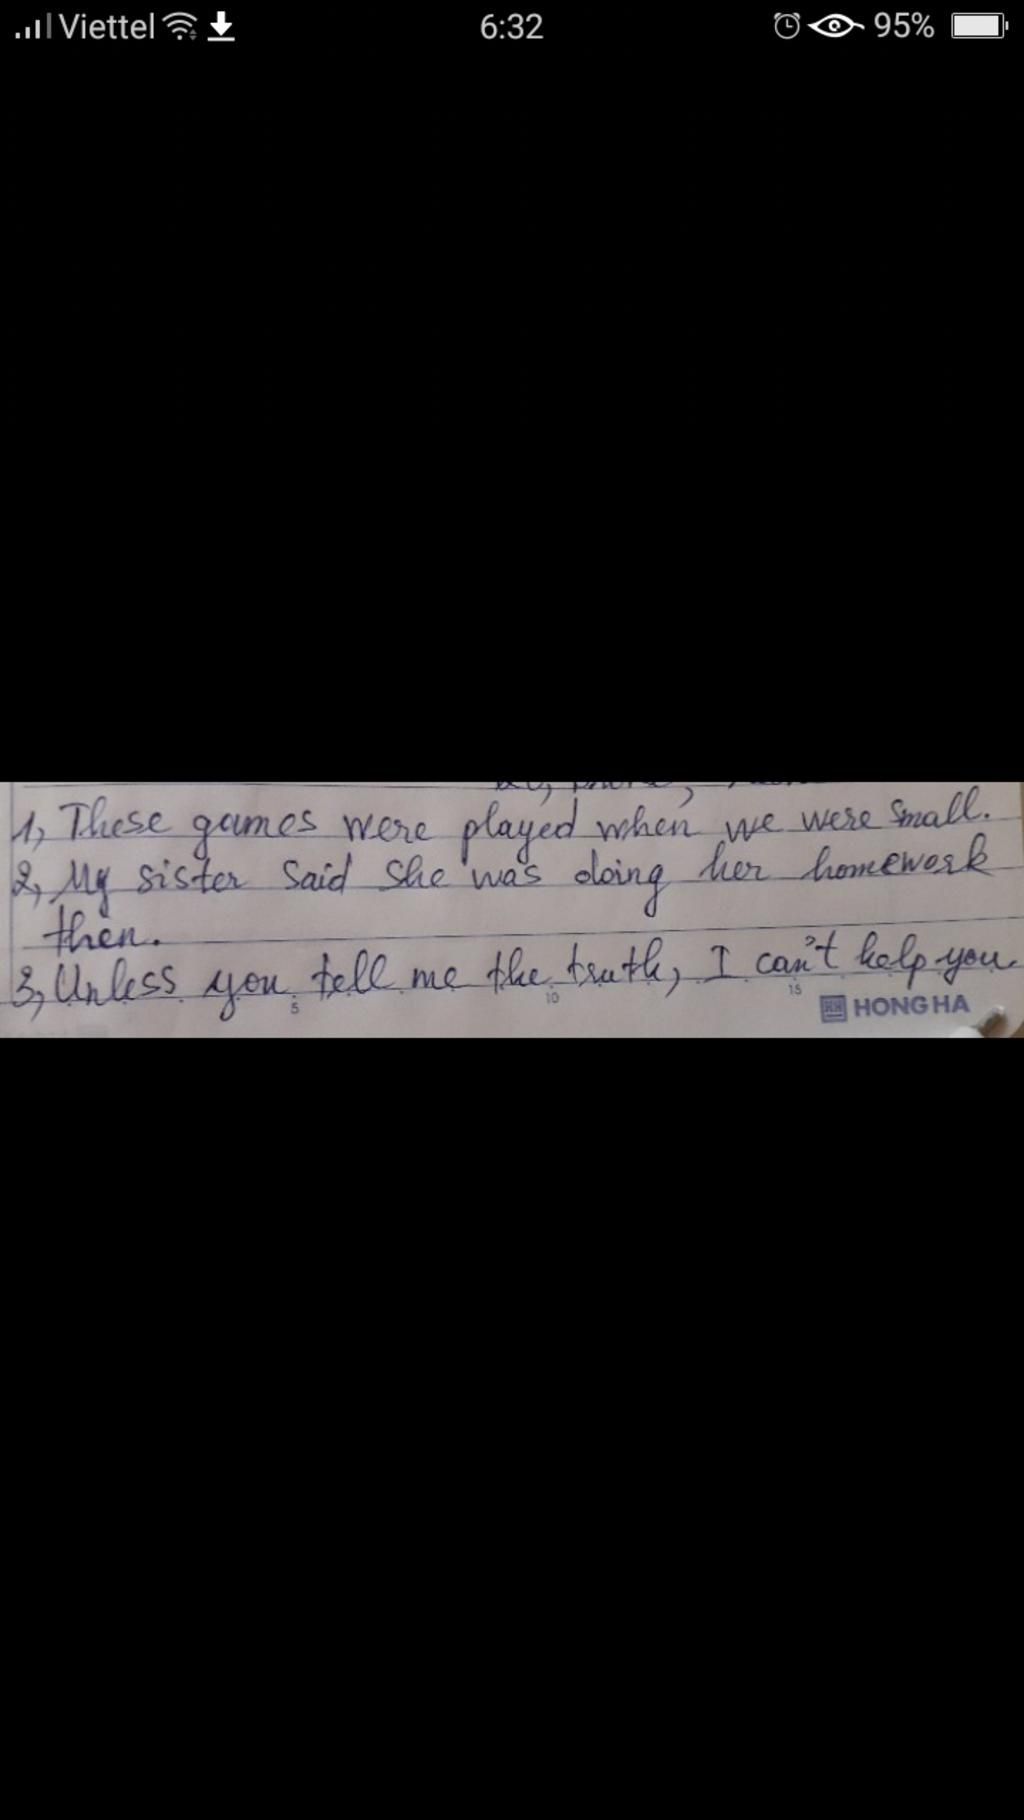 Viettel 6:32 95%
1, These games were played when we were small.
2, My sister said she was doing her homework
then.
3, Unless you tell me the truth, I can't help you
5 10 15
HONG HA